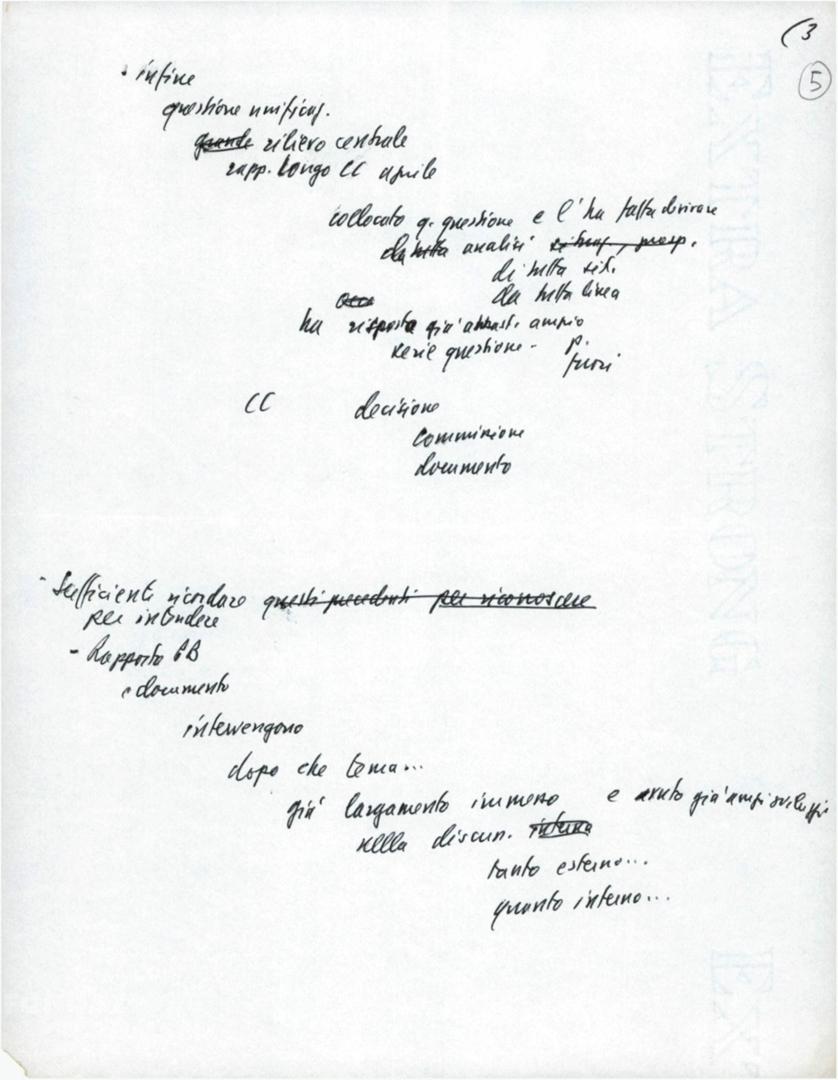 (3
5
· infine
questione unificaz.
grande rilievo centrale
rapp. Longo CC aprile
collocato q. questione e l'ha fatta derivare
da tutta analisi situaz., prosp.
di tutta sit.
da tutta linea
ha risposto già abbast. ampio
serie questione - p.
fuori
CC decisione
commissione
documento
- Sufficienti ricordare questi precedenti per riconoscere
per intendere
- Rapporto PB
e documento
intervengono
dopo che tema...
già largamento immesso e avuto già ampi sviluppi
nella discuss. interna
tanto esterno...
quanto interno...
EXTRA STRONG
EX